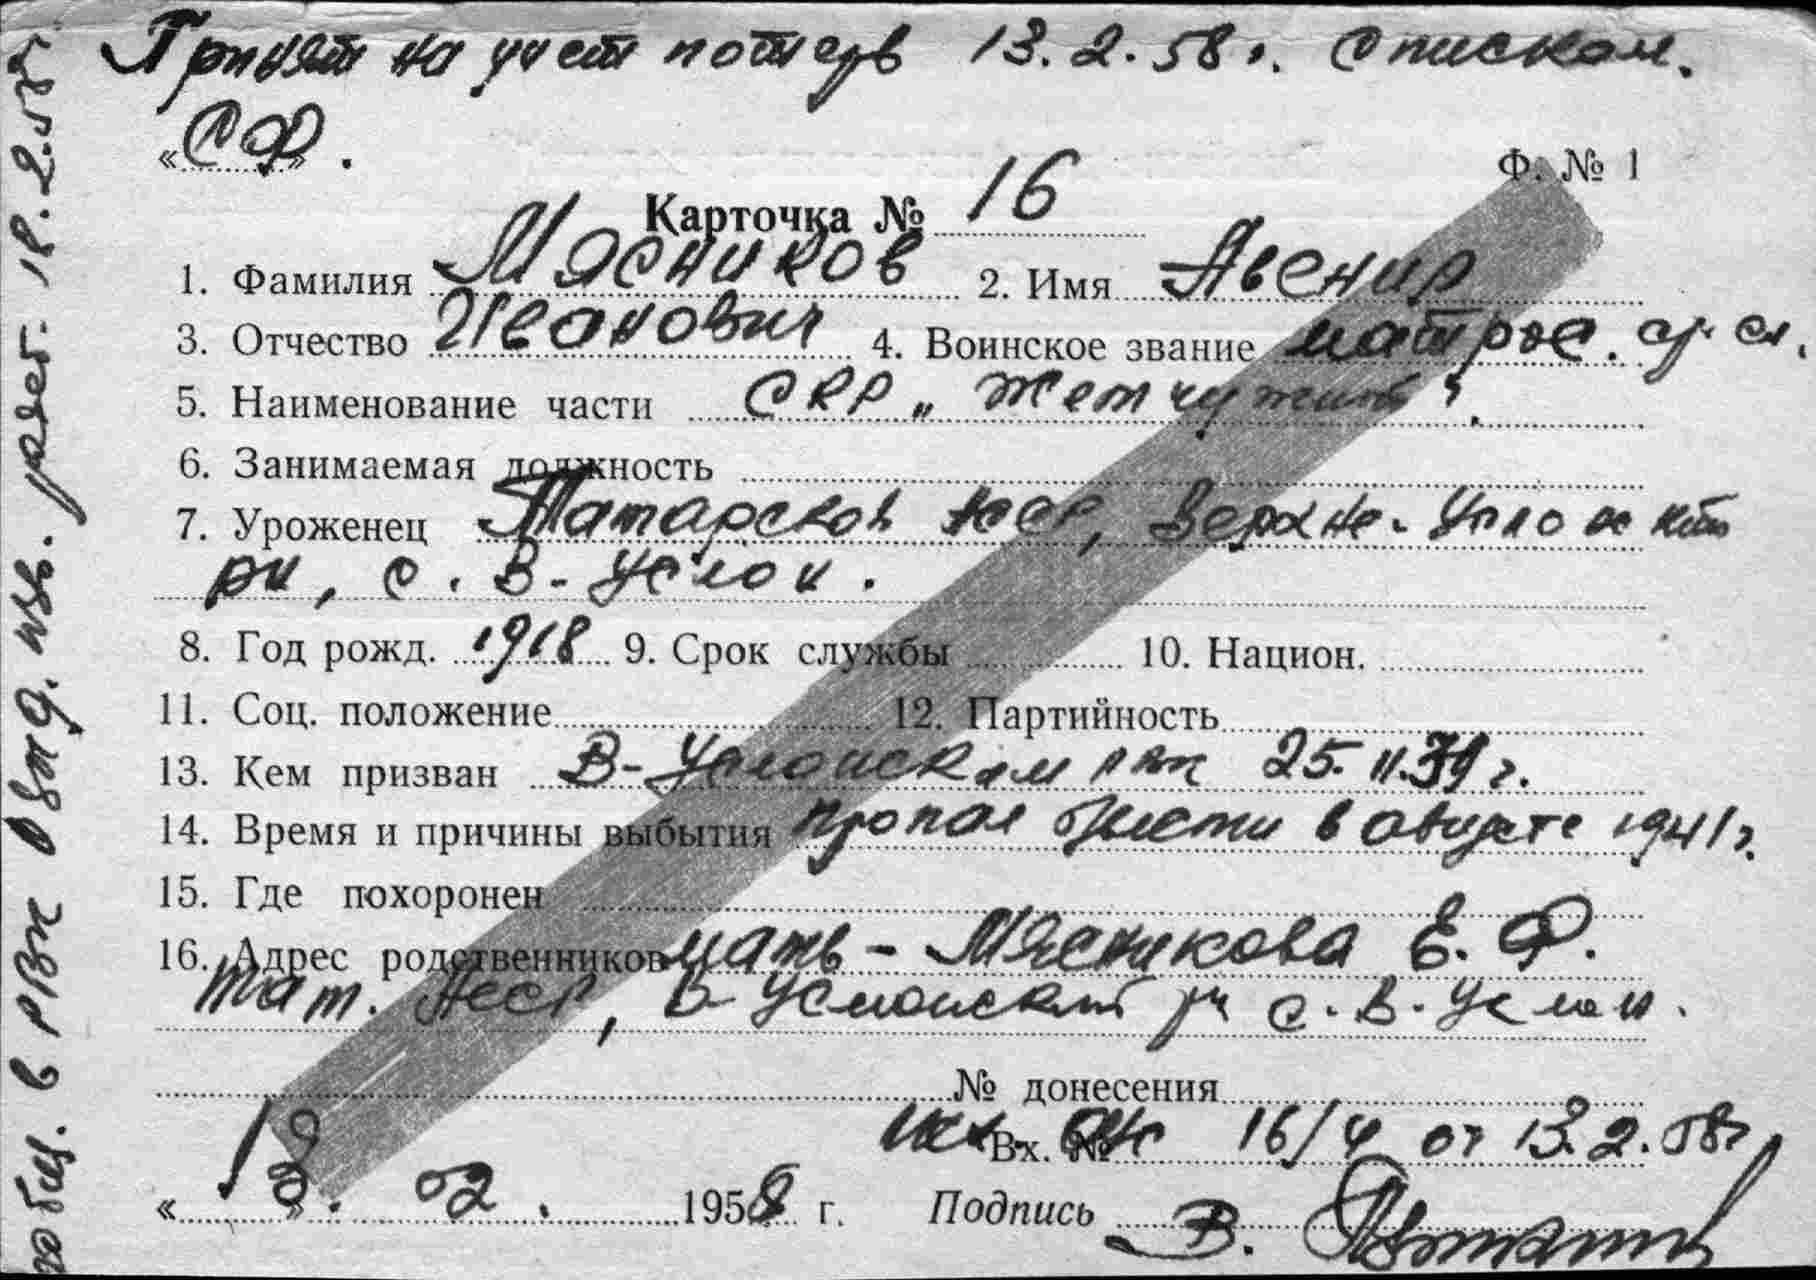 Принят на учет потерь 13.2.58 г. списком.
« СФ » .
Ф. № 1
Карточка № 16
1. Фамилия Мясников 2. Имя Авенир
3. Отчество Иванович 4. Воинское звание матрос. ср. сл.
5. Наименование части СКР „Жемчужина".
6. Занимаемая должность
7. Уроженец Татарской АССР, Верхне-Услонский
рн, с. В-Услон.
8. Год рожд. 1918 9. Срок службы 10. Национ.
11. Соц. положение 12. Партийность
13. Кем призван В-Услонским РВК 25.11.39 г.
14. Время и причины выбытия пропал б/вести в августе 1941 г.
15. Где похоронен
16. Адрес родственников мать - Мясникова Е. Ф.
Тат. АССР, В-Услонский рн с. В. Услон.
№ донесения
Вх. № 16/4 от 13.2.58 г
« 13 » . 02 . 1958 г. Подпись В.
сообщ. в РВК изв. 18.2.58